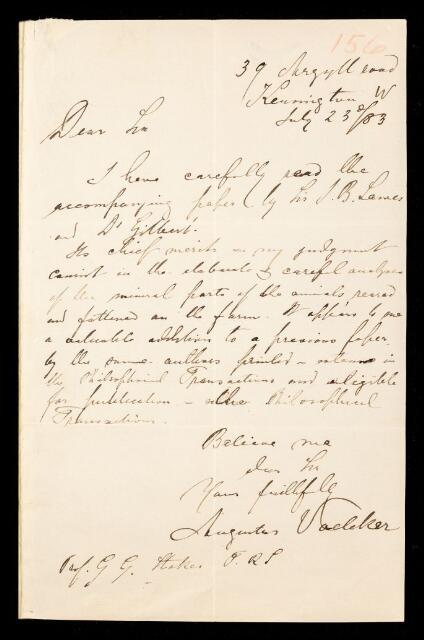 156
39 Argyll road
Kensington W
July 23d/83
Dear Sir
I have carefully read the
accompanying paper by Sir J. B. Lawes
and Dr Gilbert.
Its chief merits in my judgment
consist in the elaborate & careful analyses
of the mineral parts of the animals reared
and fattened on the farm. It appears to me
a valuable addition to a previous paper
by the same authors printed in
the Philosophical Transactions and eligible
for publication in the Philosophical
Transactions.
Believe me
dear Sir
Yours faithfully
Augustus Voelcker
Prof. G G. Stokes F. R S